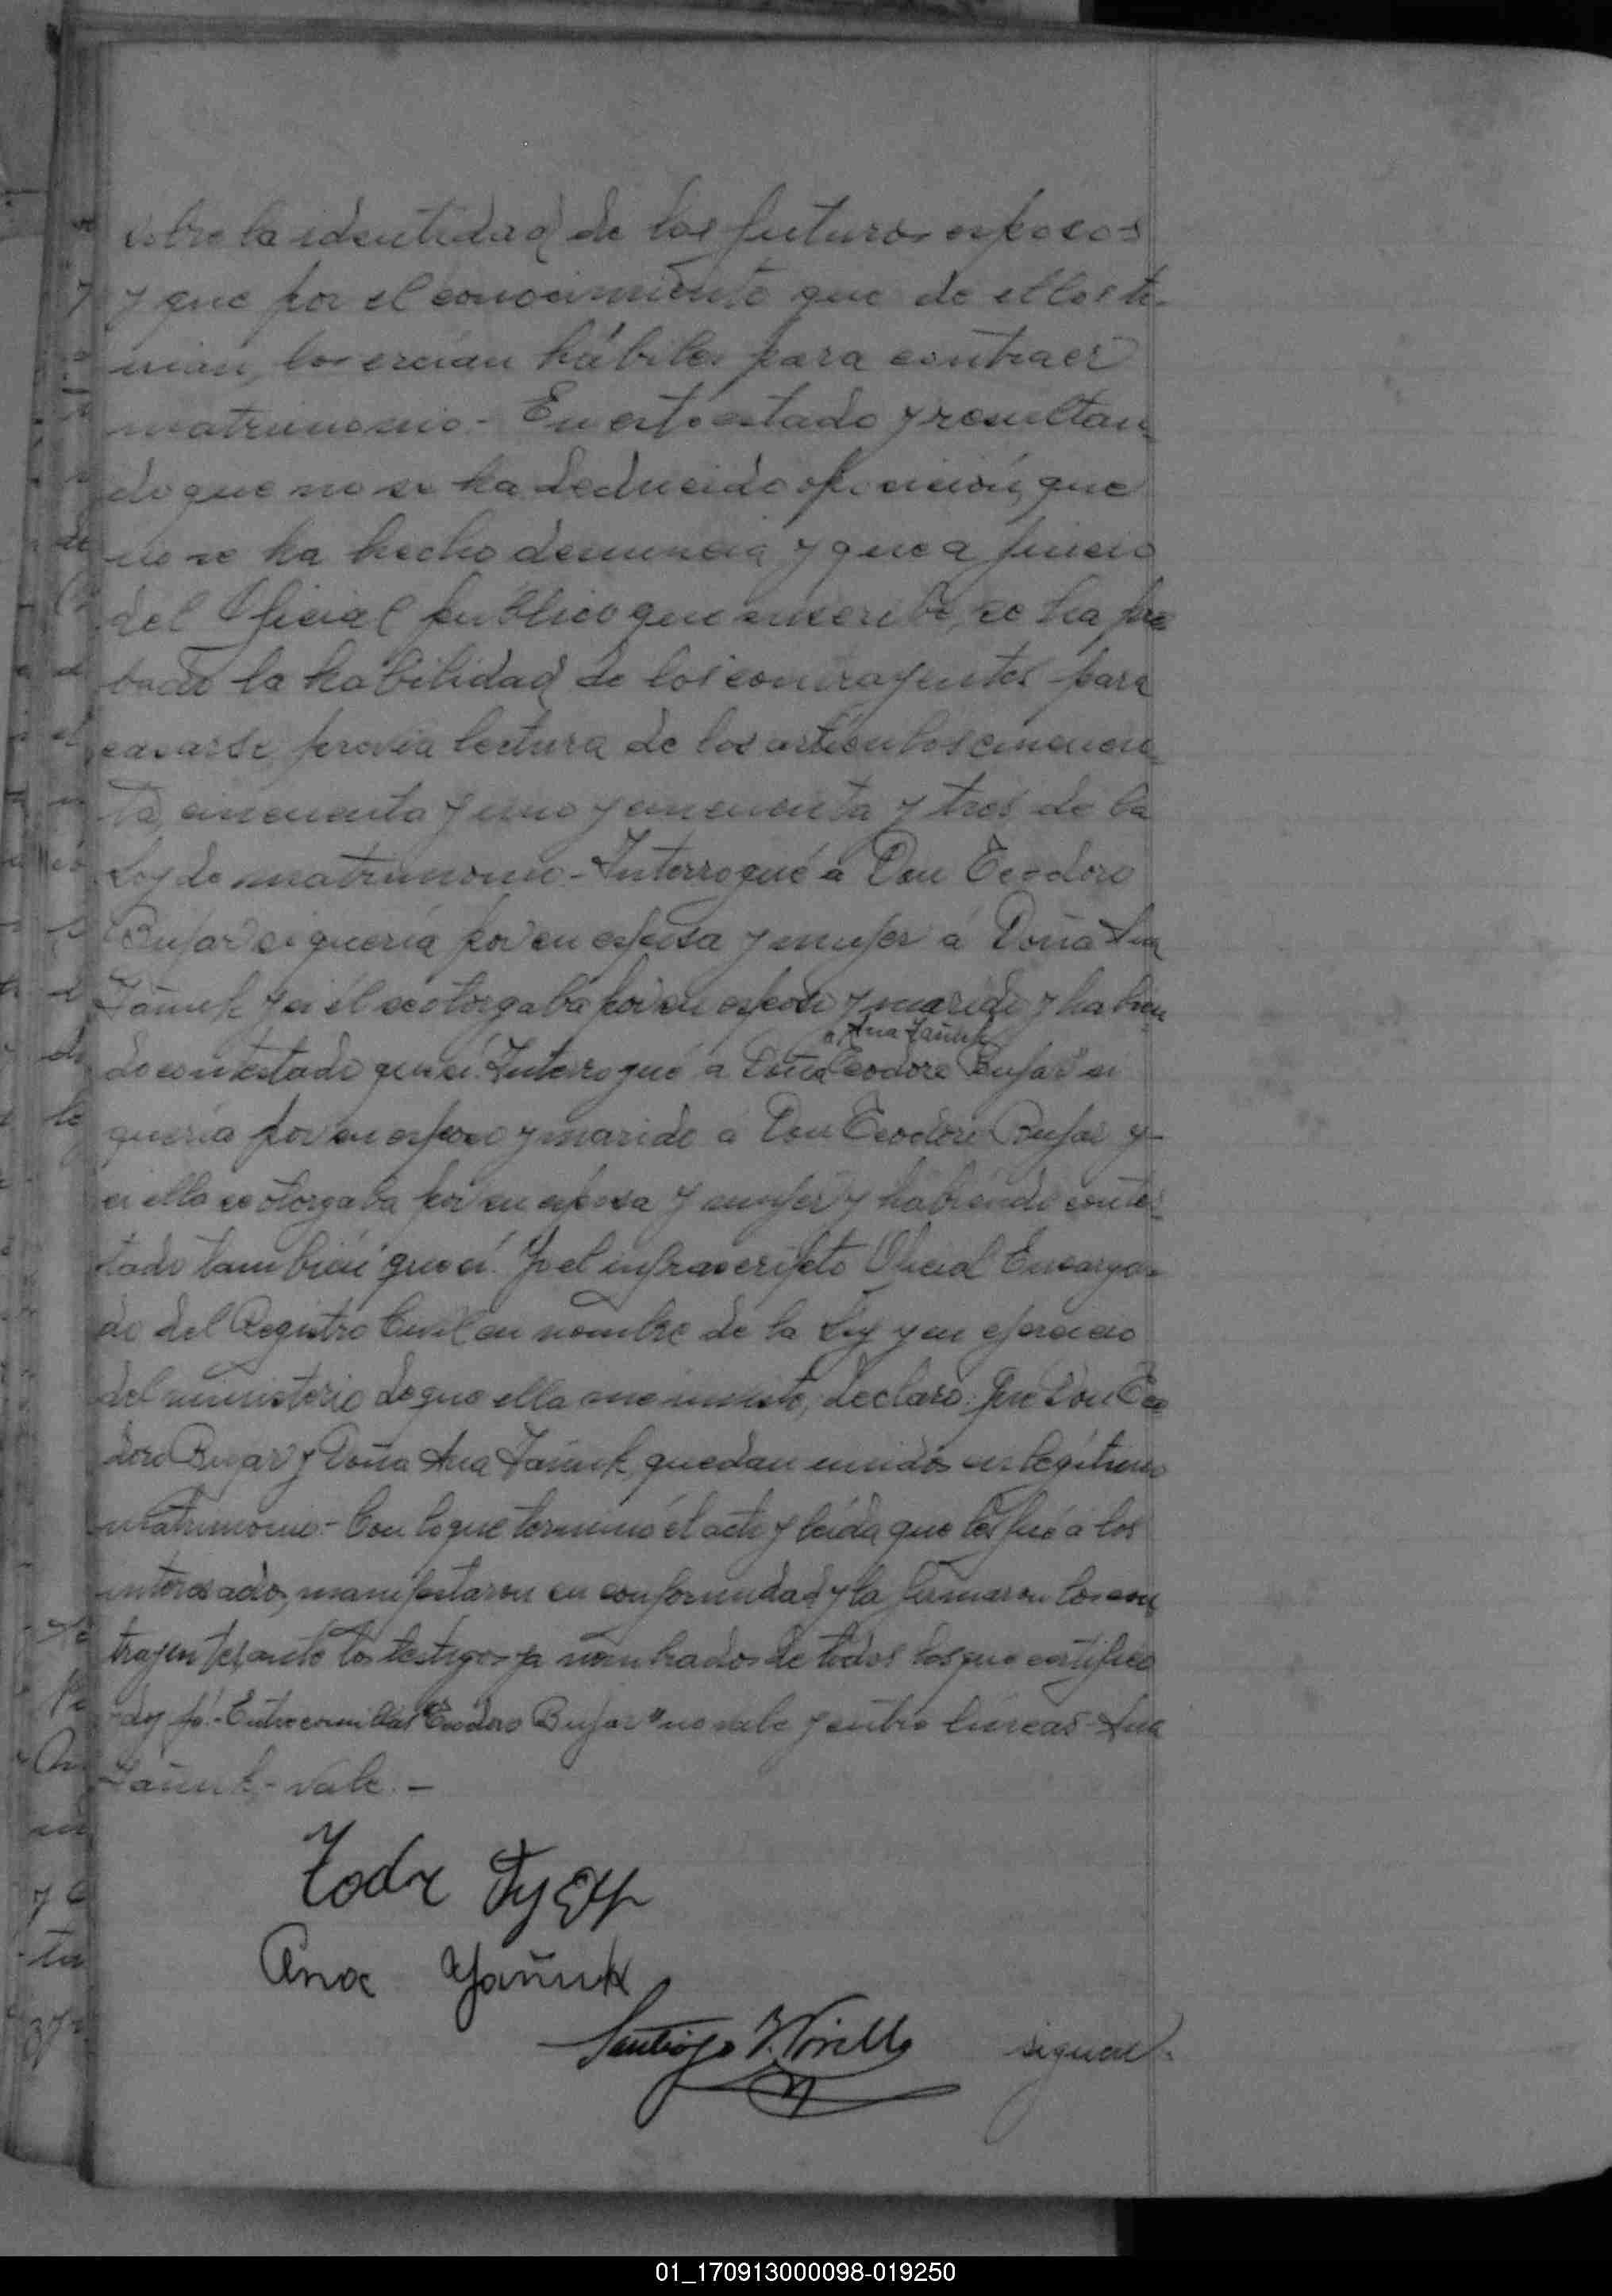 sobre la identidad de los futuros esposos
y que por el conocimiento que de ellos te-
nian, los creían hábiles para contraer
matrimonio.- En este estado y resultan-
do que no se ha deducido oposición, que
no se ha hecho denuncia y que a juicio
del Oficial público que suscribe, se ha pro
bado la habilidad de los contrayentes para
casarse, previa lectura de los artículos cincuen-
ta, cincuenta y uno y cincuenta y tres de la
Ley de matrimonio.- Interrogué a Don Teodoro
Bujar si quería por su esposa y mujer á Doña Ana
Yañuk y si él se otorgaba por su esposo y marido y habien
" Ana Yañuk
do contestado que sí. Interrogué a Doña "Teodoro Bujar" si
quería por su esposo y marido a Don Teodoro Bujar y
si ella se otorgaba por su esposa y mujer y habiendo contes-
tado también que sí. Yo el infrascripto Oficial Encarga-
do del Registro Civil en nombre de la Ley y en ejercicio
del ministerio de que ella me inviste, declaro: Que Don Teo
doro Bujar y Doña Ana Yañuk, quedan unidos en legítimo
matrimonio.- Con lo que terminó el acto y leída que les fué a los
interesados, manifestaron su conformidad y la firmaron los con
trayentes ante los testigos ya nombrados de todos los que certifico
doy fé.- Entre comillas "Teodoro Bujar" no vale y entre líneas- Ana
Yañuk- vale.-
Ana Yañuk
Santiago siguen
01_170913000098-019250